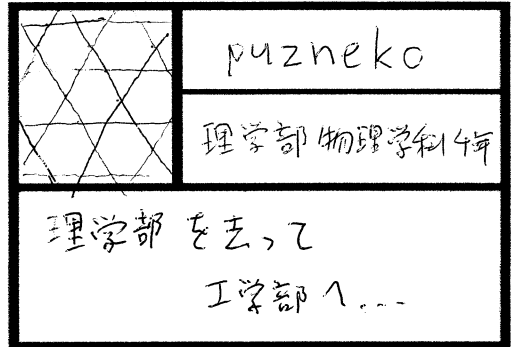 puzneko
理学部物理学科4年
理学部を去って
工学部へ...